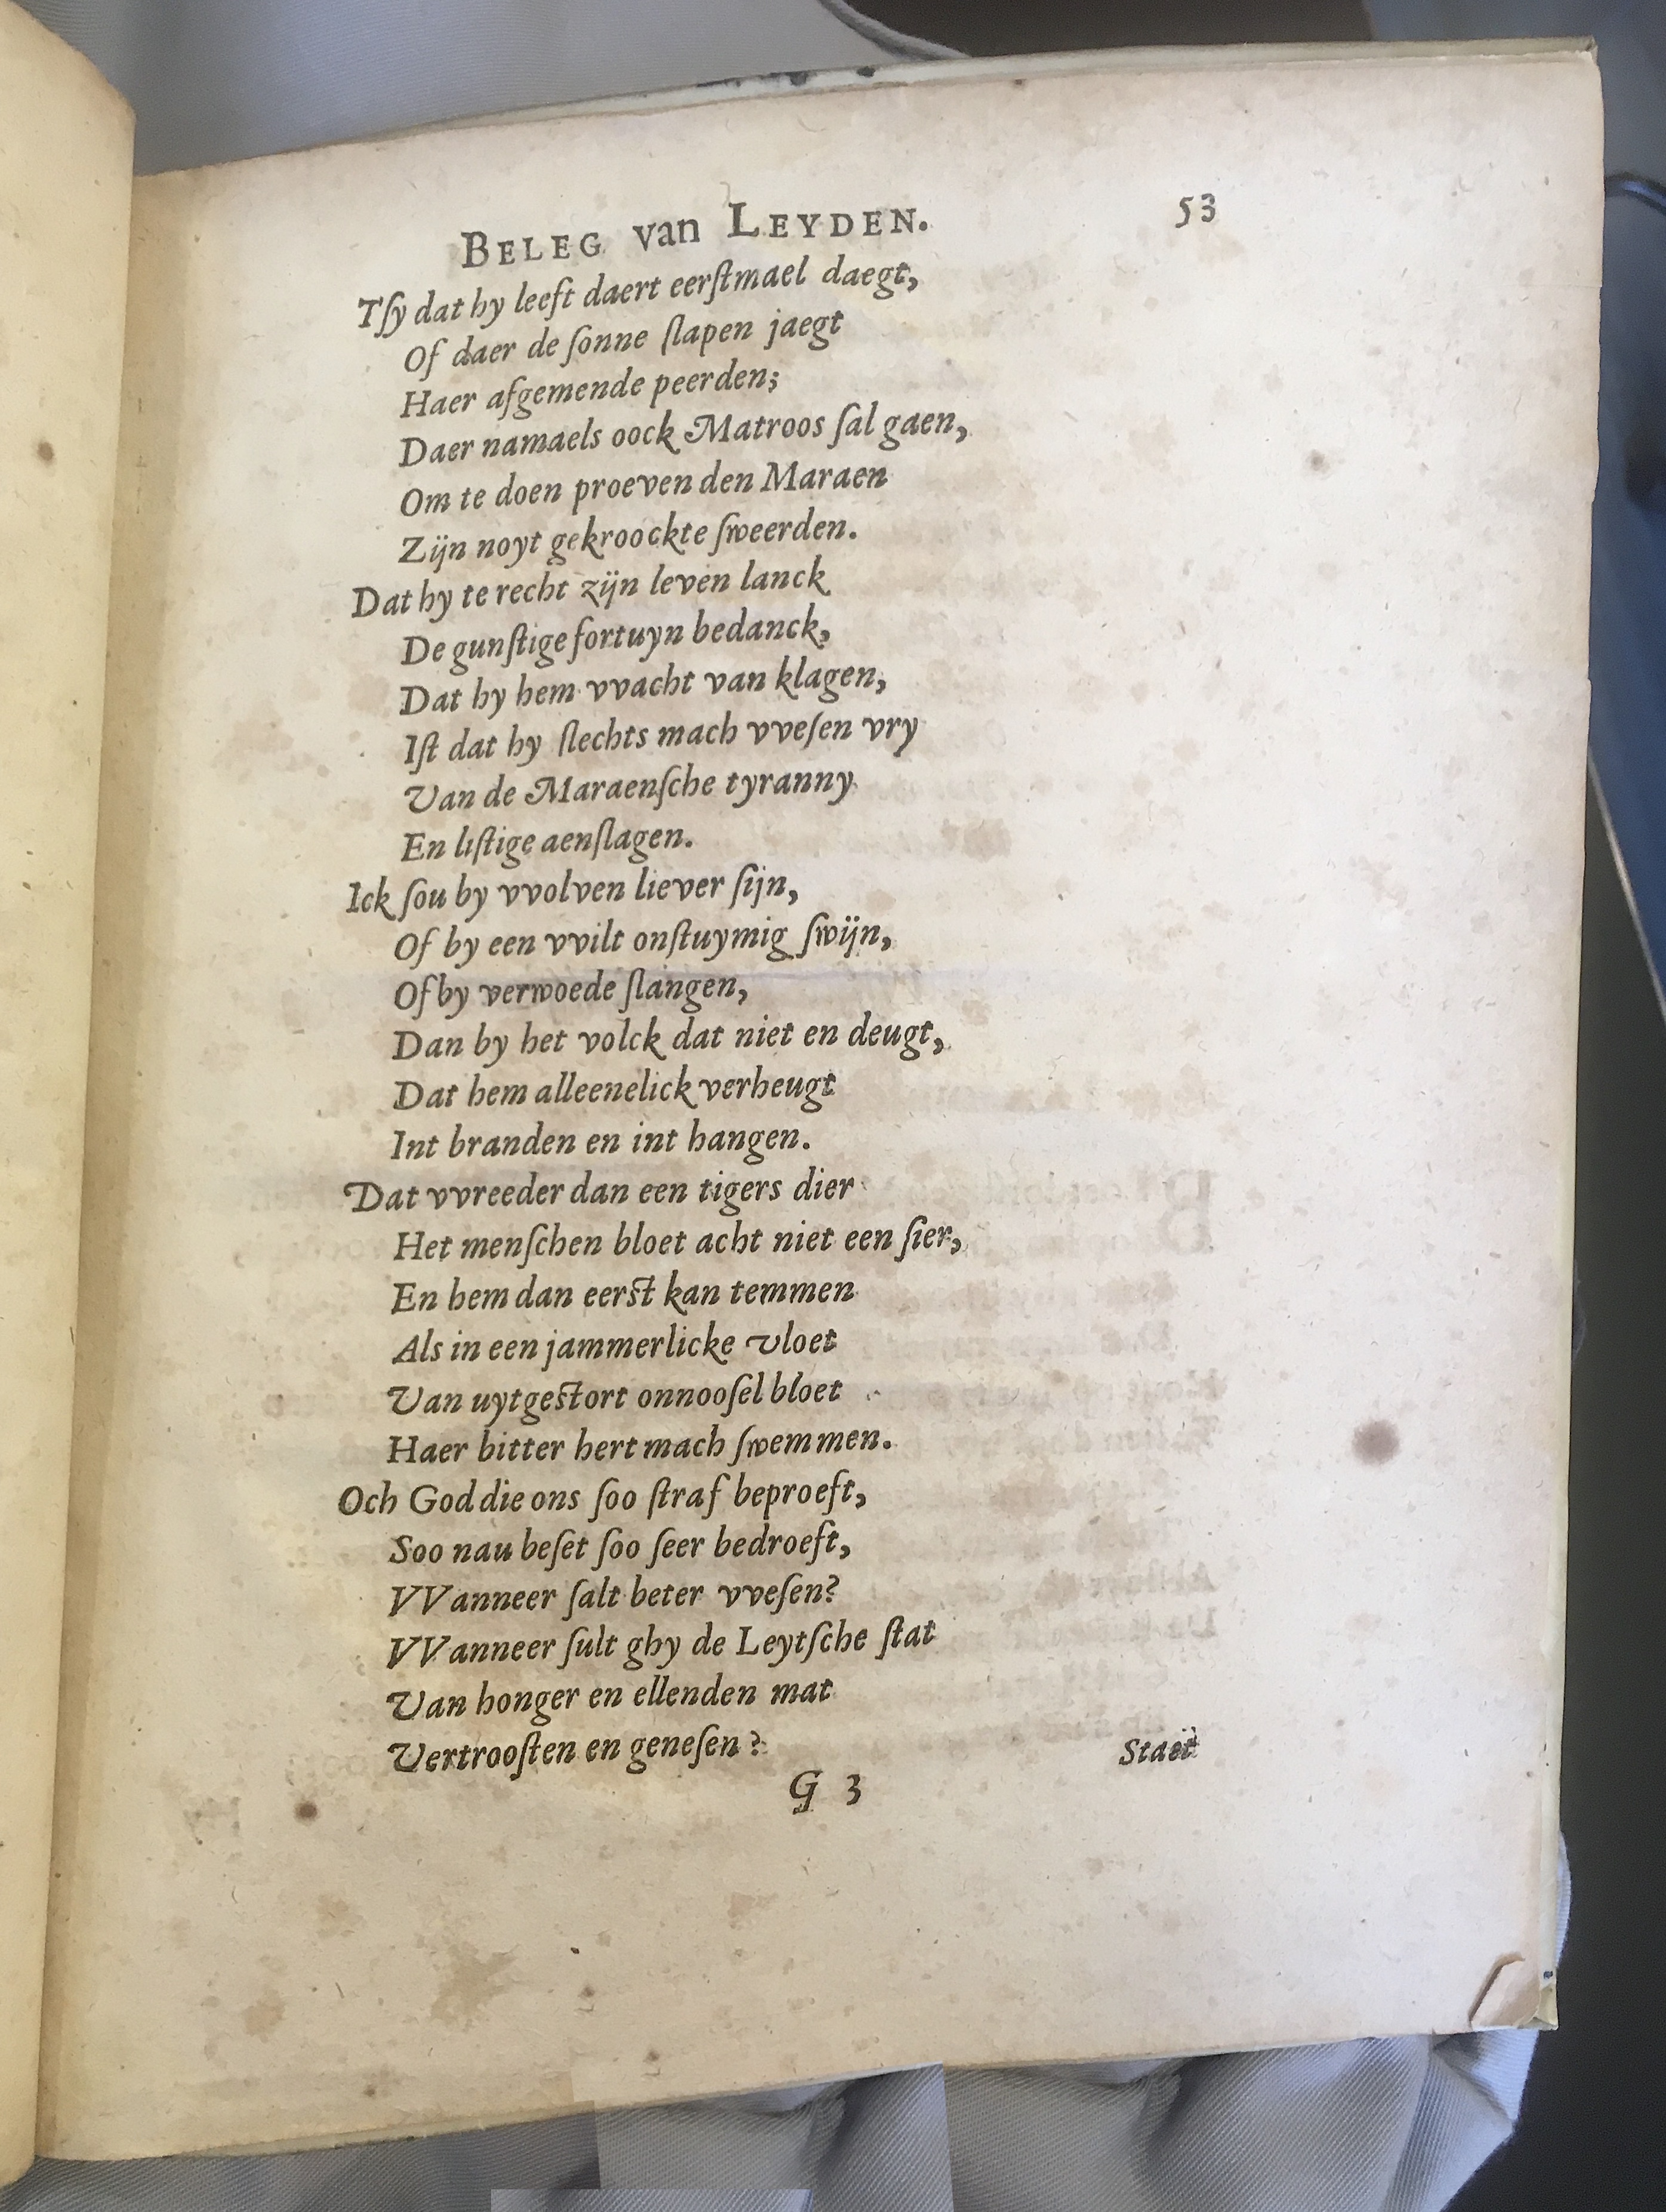 BELEG van LEYDEN. 53
Tſy dat hy leeft daert eerſtmael daegt,
Of daer de ſonne ſlapen jaegt
Haer afgemende peerden;
Daer namaels oock Matroos ſal gaen,
Om te doen proeven den Maraen
Zijn noyt gekroockte ſweerden.
Dat hy te recht zijn leven lanck
De gunſtige fortuyn bedanck,
Dat hy hem vvacht van klagen,
Iſt dat hy ſlechts mach vveſen vry
Van de Maraenſche tyranny
En liſtige aenſlagen.
Ick ſou by vvolven liever ſijn,
Of by een vvilt onſtuymig ſwijn,
Of by verwoede ſlangen,
Dan by het volck dat niet en deugt,
Dat hem alleenelick verheugt
Int branden en int hangen.
Dat vvreeder dan een tigers dier
Het menſchen bloet acht niet een ſier,
En hem dan eerst kan temmen
Als in een jammerlicke vloet
Van uytgestort onnooſel bloet
Haer bitter hert mach ſwemmen.
Och God die ons ſoo ſtraf beproeft,
Soo nau beſet ſoo ſeer bedroeft,
VVanneer ſalt beter vveſen?
VVanneer ſult ghy de Leytſche ſtat
Van honger en ellenden mat
Vertrooſten en geneſen?
G 3 Staet